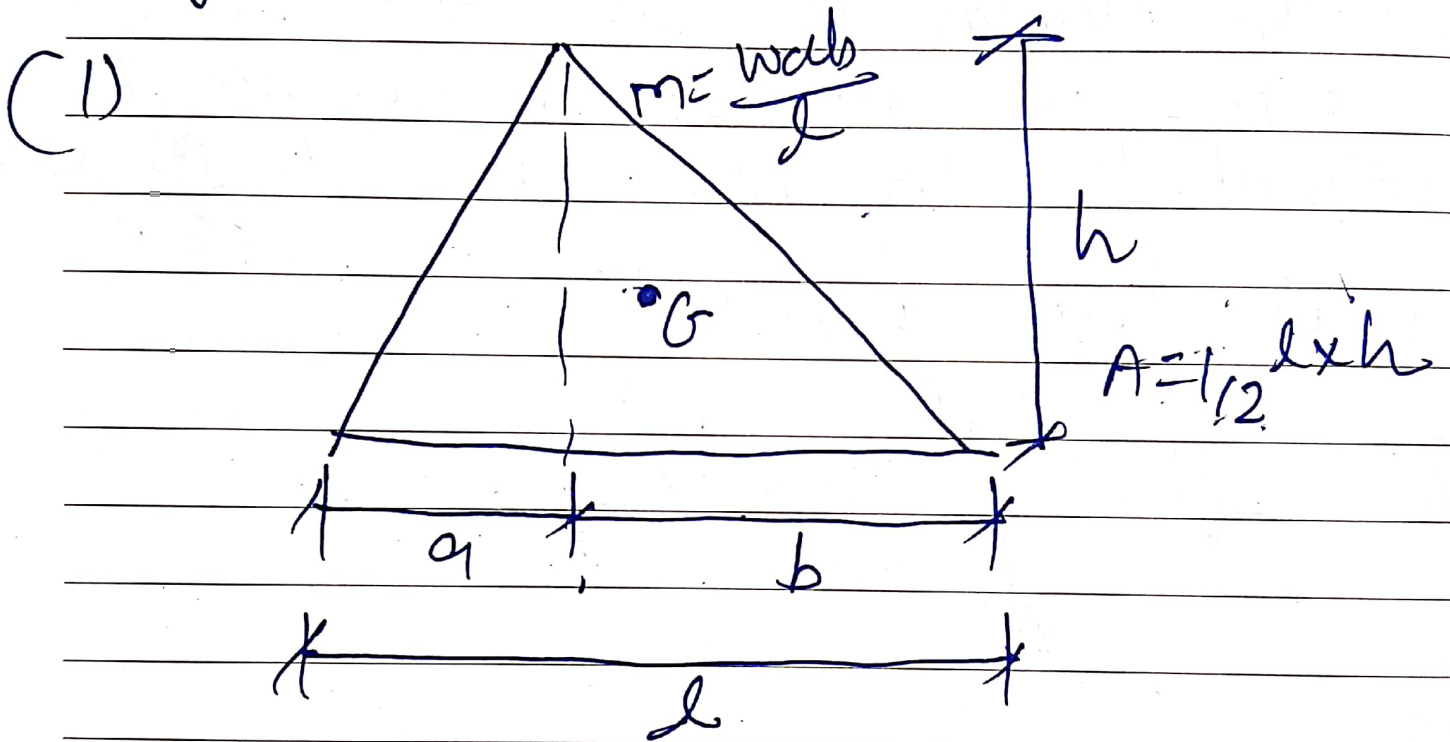 (1)
m = wab / l
h
G
A = 1/2 l x h
a
b
l